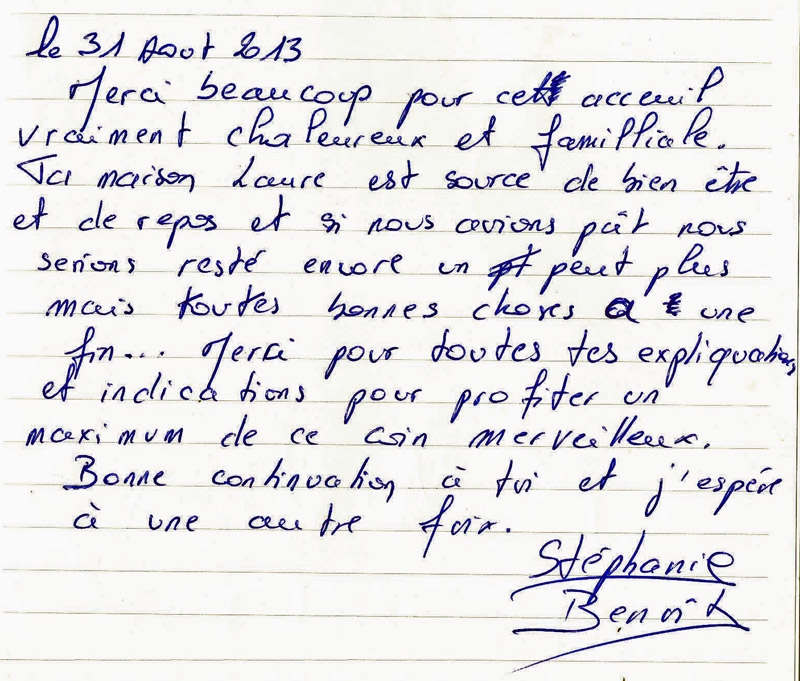 le 31 Aout 2013
Merci beaucoup pour cet acceuil
vraiment chaleureux et familliale.
Ta maison Laure est source de bien être
et de repos et si nous avions pût nous
serions resté encore un peut plus
mais toutes bonnes choses a une
fin... Merci pour toutes tes expliquations
et indications pour profiter un
maximum de ce coin merveilleux.
Bonne continuation à toi et j'espère
à une autre foix.
Stéphanie
Benoît